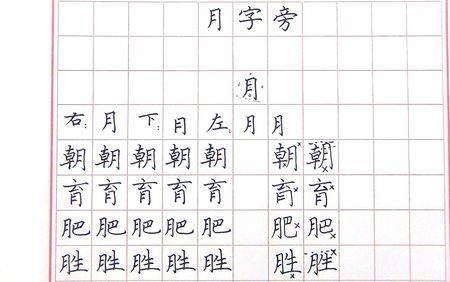 月字旁
月
右: 月 下: 月 左: 月 月
朝 朝 朝 朝 朝 朝 朝
育 育 育 育 育 育 育
肥 肥 肥 肥 肥 肥 肥
胜 胜 胜 胜 胜 胜 胜